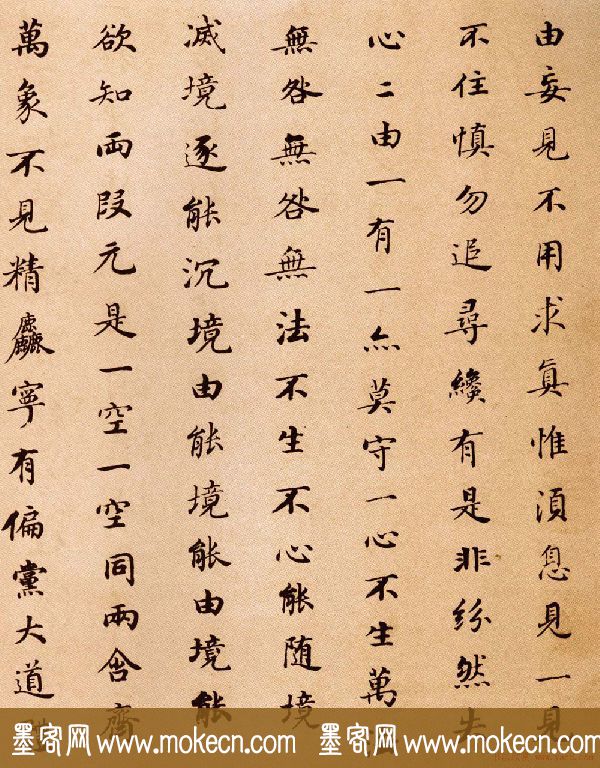 由妄見不用求眞惟須息見一見
不住慎勿追尋纔有是非紛然失
心二由一有一亦莫守一心不生萬法
無咎無咎無法不生不心能随境
滅境逐能沉境由能境能由境能
欲知兩段元是一空一空同兩含齊
萬象不見精麤寧有偏黨大道
墨客网 www.mokecn.com 墨客网 www.mokecn.com